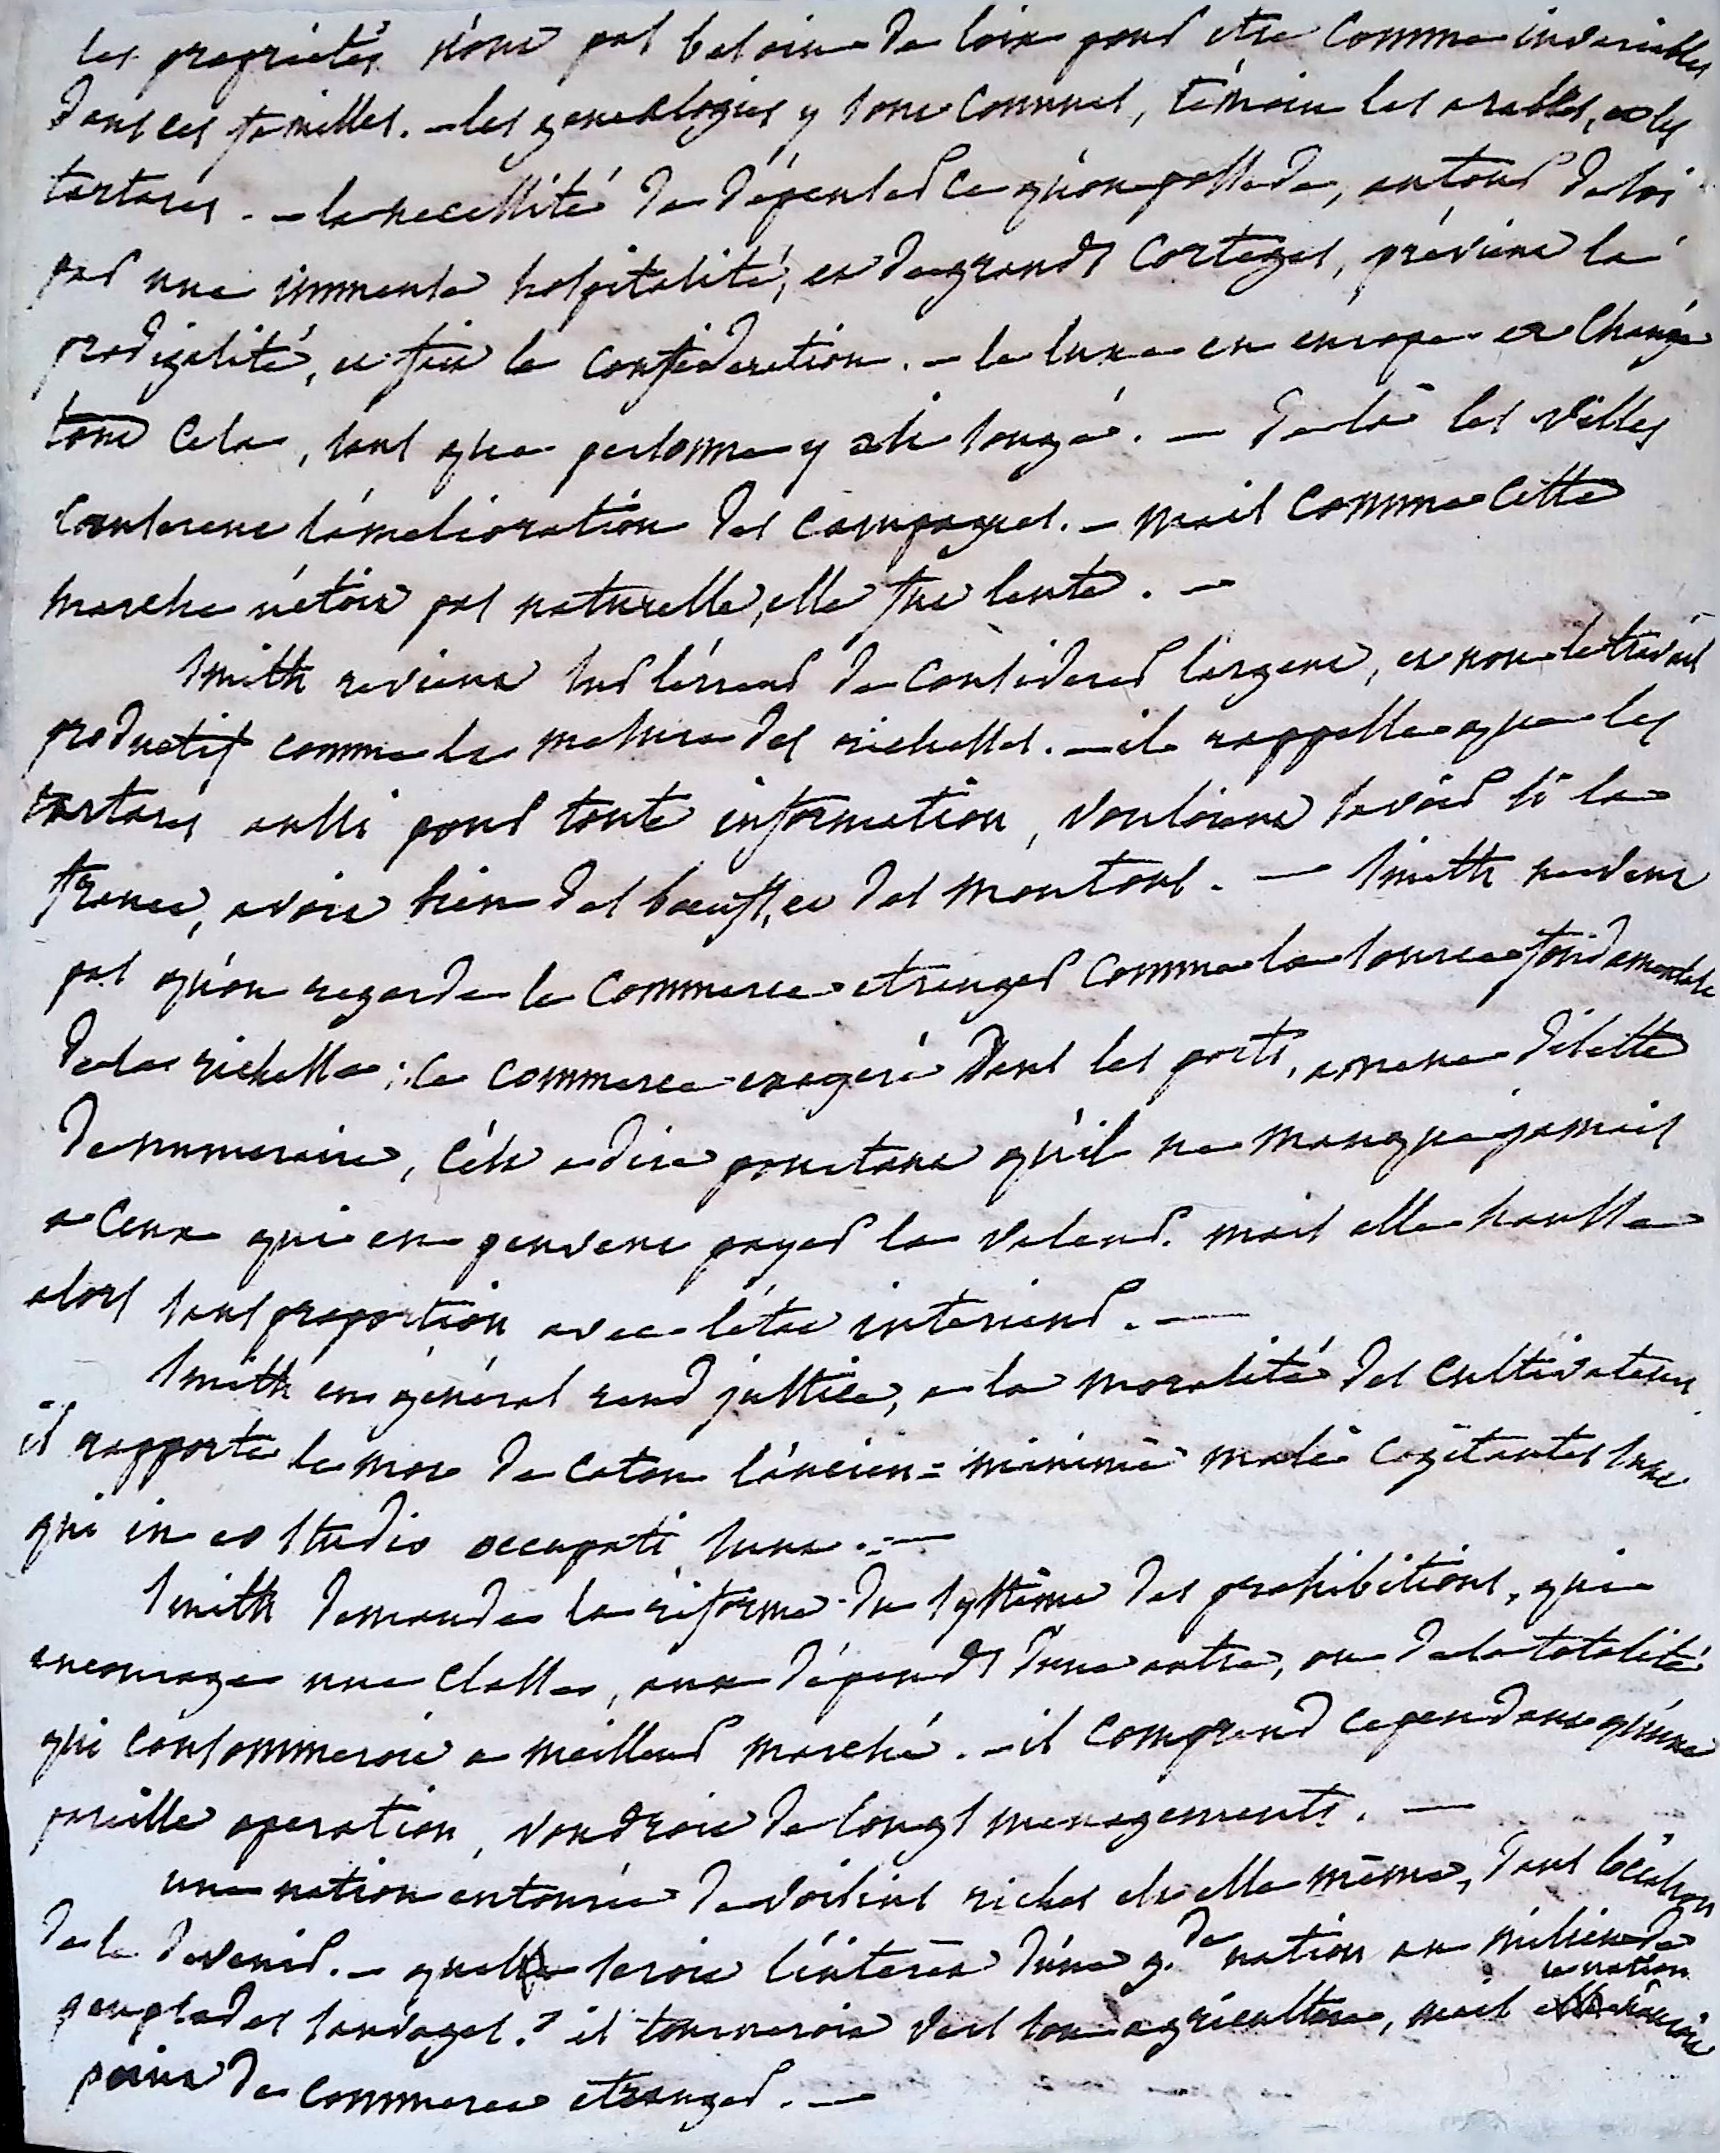 les propriétés n'ont pas besoin de loix pour etre comme invariables
dans ces familles. - les genealogies y sont connues, témoin les arabes, et les
tartares. - la necessité de dépenser ce qu'on possede, autour de soi
par une immense hospitalité, et de grands corteges, prévient la
prodigalité, et fait la consideration. - le luxe en europe a changé
tout cela, sans que personne y ait songé. - de là les villes
causerent l'amelioration des campagnes. - mais comme cette
marche n'étoit pas naturelle, elle fut lente. -
Smith revient sur l'erreur de considerer l'argent, et non le travail
productif comme la mesure des richesses. - il rappelle que les
tartares aussi pour toute information, vouloient savoir si la
france, avoit bien des boeufs, et des moutons. - Smith ne veut
pas qu'on regarde le commerce etranger comme la source fondamentale
de la richesse ; le commerce exageré dans les ports, amene disette
de numeraire, c'est a dire pourtant qu'il ne manque jamais
a ceux qui en peuvent payer la valeur. mais elle hausse
alors sans proportion avec l'état interieur. -
Smith en général rend justice, a la moralité des cultivateurs.
il rapporte le mot de caton l'ancien = minimè malè cogitantes sunt
qui in eo studio occupati sunt. -
Smith demande la réforme du systême des prohibitions, qui
encourage une classe, aux dépends d'une autre, ou de la totalité
qui consommeroit a meilleur marché. - il comprend cependant qu'une
pareille operation, voudroit de longs menagements. -
une nation entourée de voisins riches est elle même, dans l'occasion
de le devenir. - quel seroit l'intérêt d'une g.de nation au milieu de
peuplades sauvages ? il tourneroit vers son agriculture, mais la nation n'auroit
point de commerce etranger. -